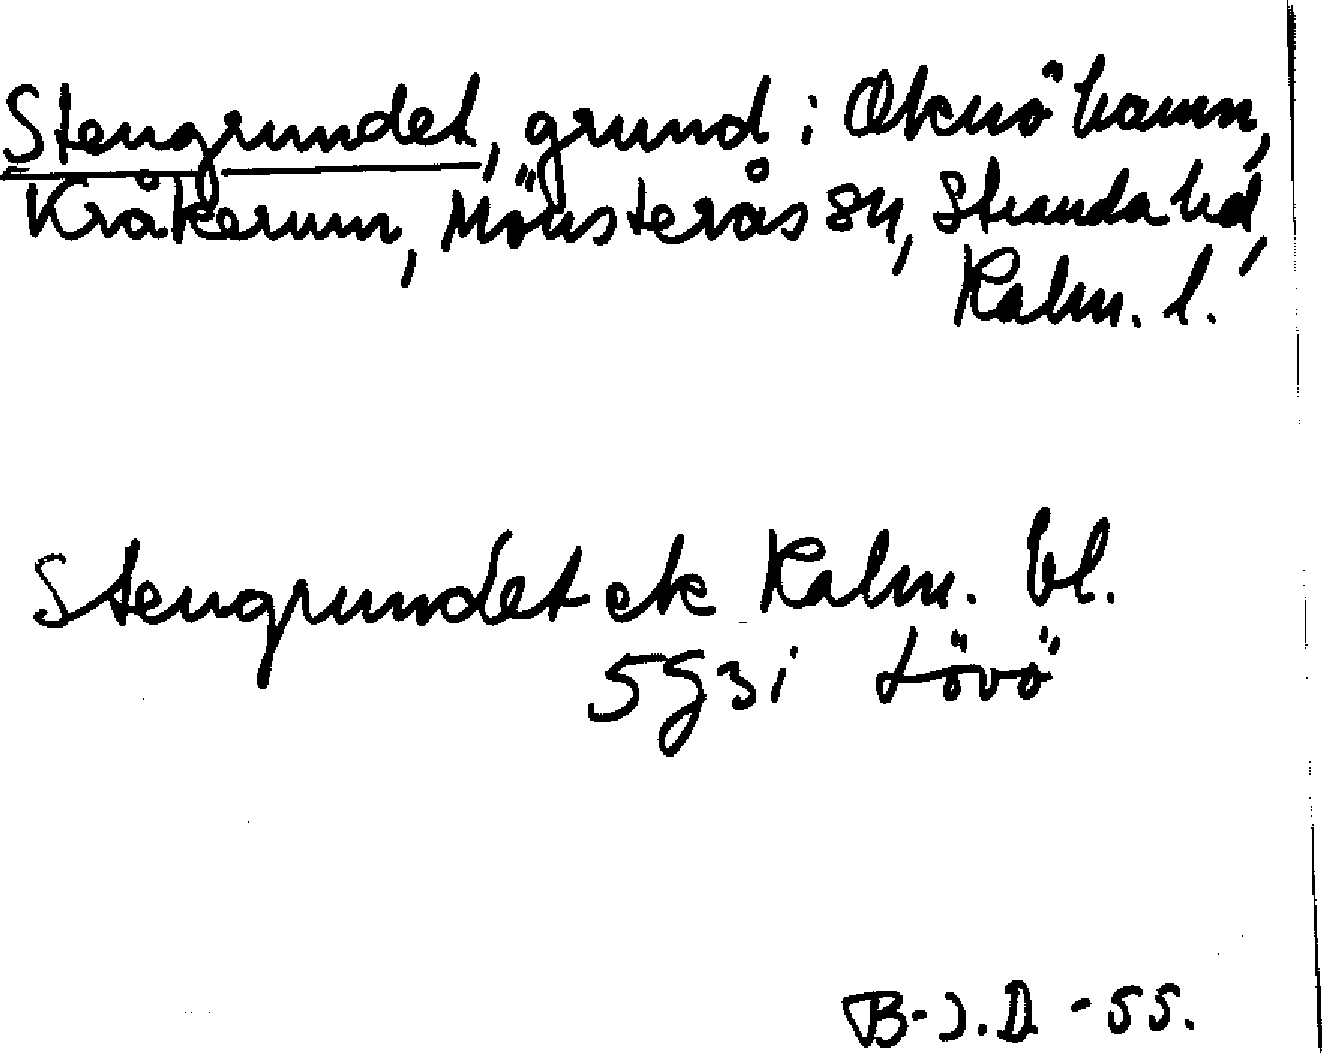 Stengrundet, grund i Oknö hamn,
Kråkerum, Mönsterås sn, Stranda hd,
Kalm. l.
Stengrundet ek Kalm. bl.
5g3i Lövö
B-J.D. -55.